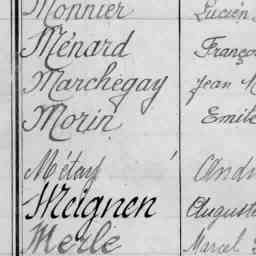 Monnier Lucien
Ménard Franço
Marchegay Jean M
Morin Emile
Métay André
Meignen Auguste
Merle Marcel